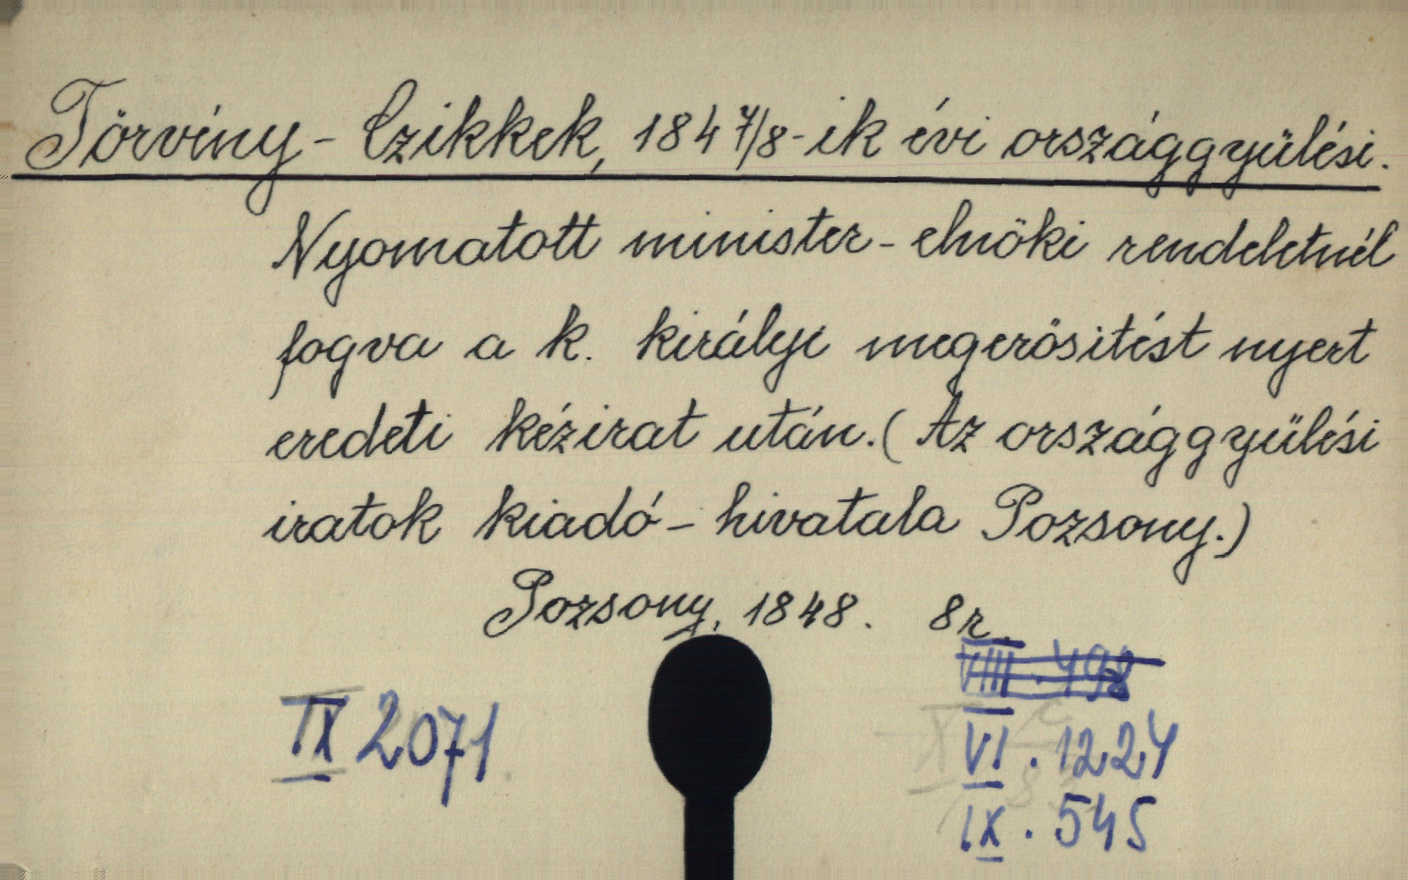 Törvény-Czikkek, 1847/8-ik évi országgyülési.
Nyomatott minister-elnöki rendeletnél
fogva a k. királyi megerösitést nyert
eredeti kézirat után. (Az országgyülési
iratok kiadó-hivatala Pozsony.)
Pozsony, 1848. 8r.
VIII. 498
IX 2071
VI. 1224
IX. 545